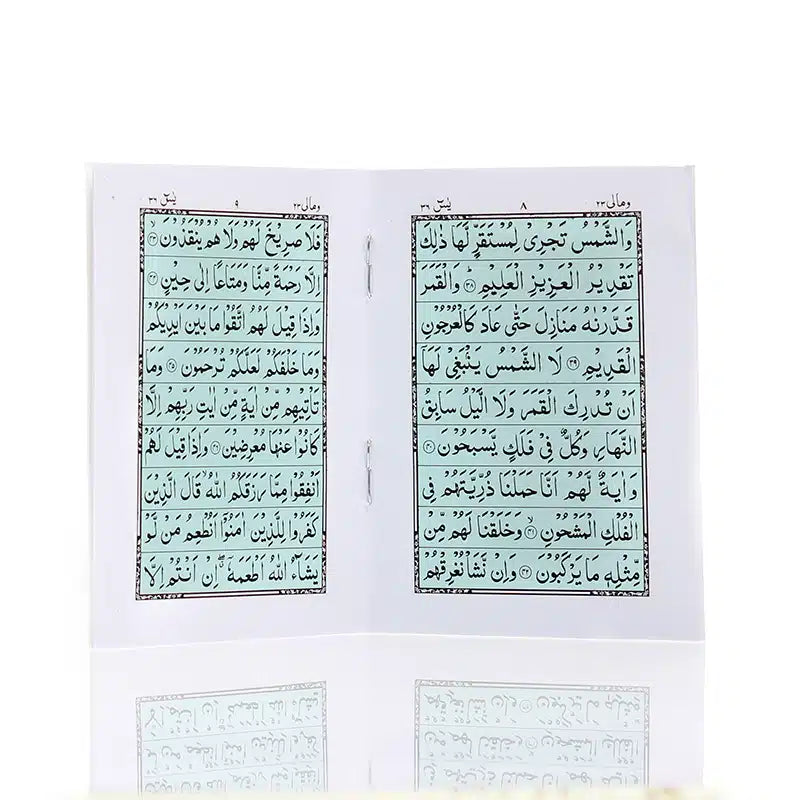 ومالی ۲۳ ۸ یٰسٓ ۳۶
وَالشَّمْسُ تَجْرِیْ لِمُسْتَقَرٍّ لَّهَا ذٰلِكَ
تَقْدِیْرُ الْعَزِیْزِ الْعَلِیْمِ ۳۸ وَالْقَمَرَ
قَدَّرْنٰهُ مَنَازِلَ حَتّٰی عَادَ كَالْعُرْجُوْنِ
الْقَدِیْمِ ۳۹ لَا الشَّمْسُ یَنْۢبَغِیْ لَهَاۤ
اَنْ تُدْرِكَ الْقَمَرَ وَلَا الَّیْلُ سَابِقُ
النَّهَارِ وَكُلٌّ فِیْ فَلَكٍ یَّسْبَحُوْنَ ۴۰
وَاٰیَةٌ لَّهُمْ اَنَّا حَمَلْنَا ذُرِّیَّتَهُمْ فِی
الْفُلْكِ الْمَشْحُوْنِ ۴۱ وَخَلَقْنَا لَهُمْ مِّنْ
مِّثْلِهٖ مَا یَرْكَبُوْنَ ۴۲ وَاِنْ نَّشَاْ نُغْرِقْهُمْ
ومالی ۲۳ ۹ یٰسٓ ۳۶
فَلَا صَرِیْخَ لَهُمْ وَلَا هُمْ یُنْقَذُوْنَ ۴۳
اِلَّا رَحْمَةً مِّنَّا وَمَتَاعًا اِلٰی حِیْنٍ ۴۴
وَاِذَا قِیْلَ لَهُمُ اتَّقُوْا مَا بَیْنَ اَیْدِیْكُمْ
وَمَا خَلْفَكُمْ لَعَلَّكُمْ تُرْحَمُوْنَ ۴۵ وَمَا
تَاْتِیْهِمْ مِّنْ اٰیَةٍ مِّنْ اٰیٰتِ رَبِّهِمْ اِلَّا
كَانُوْا عَنْهَا مُعْرِضِیْنَ ۴۶ وَاِذَا قِیْلَ لَهُمْ
اَنْفِقُوْا مِمَّا رَزَقَكُمُ اللّٰهُ قَالَ الَّذِیْنَ
كَفَرُوْا لِلَّذِیْنَ اٰمَنُوْۤا اَنُطْعِمُ مَنْ لَّوْ
یَشَآءُ اللّٰهُ اَطْعَمَهٗۤ اِنْ اَنْتُمْ اِلَّا